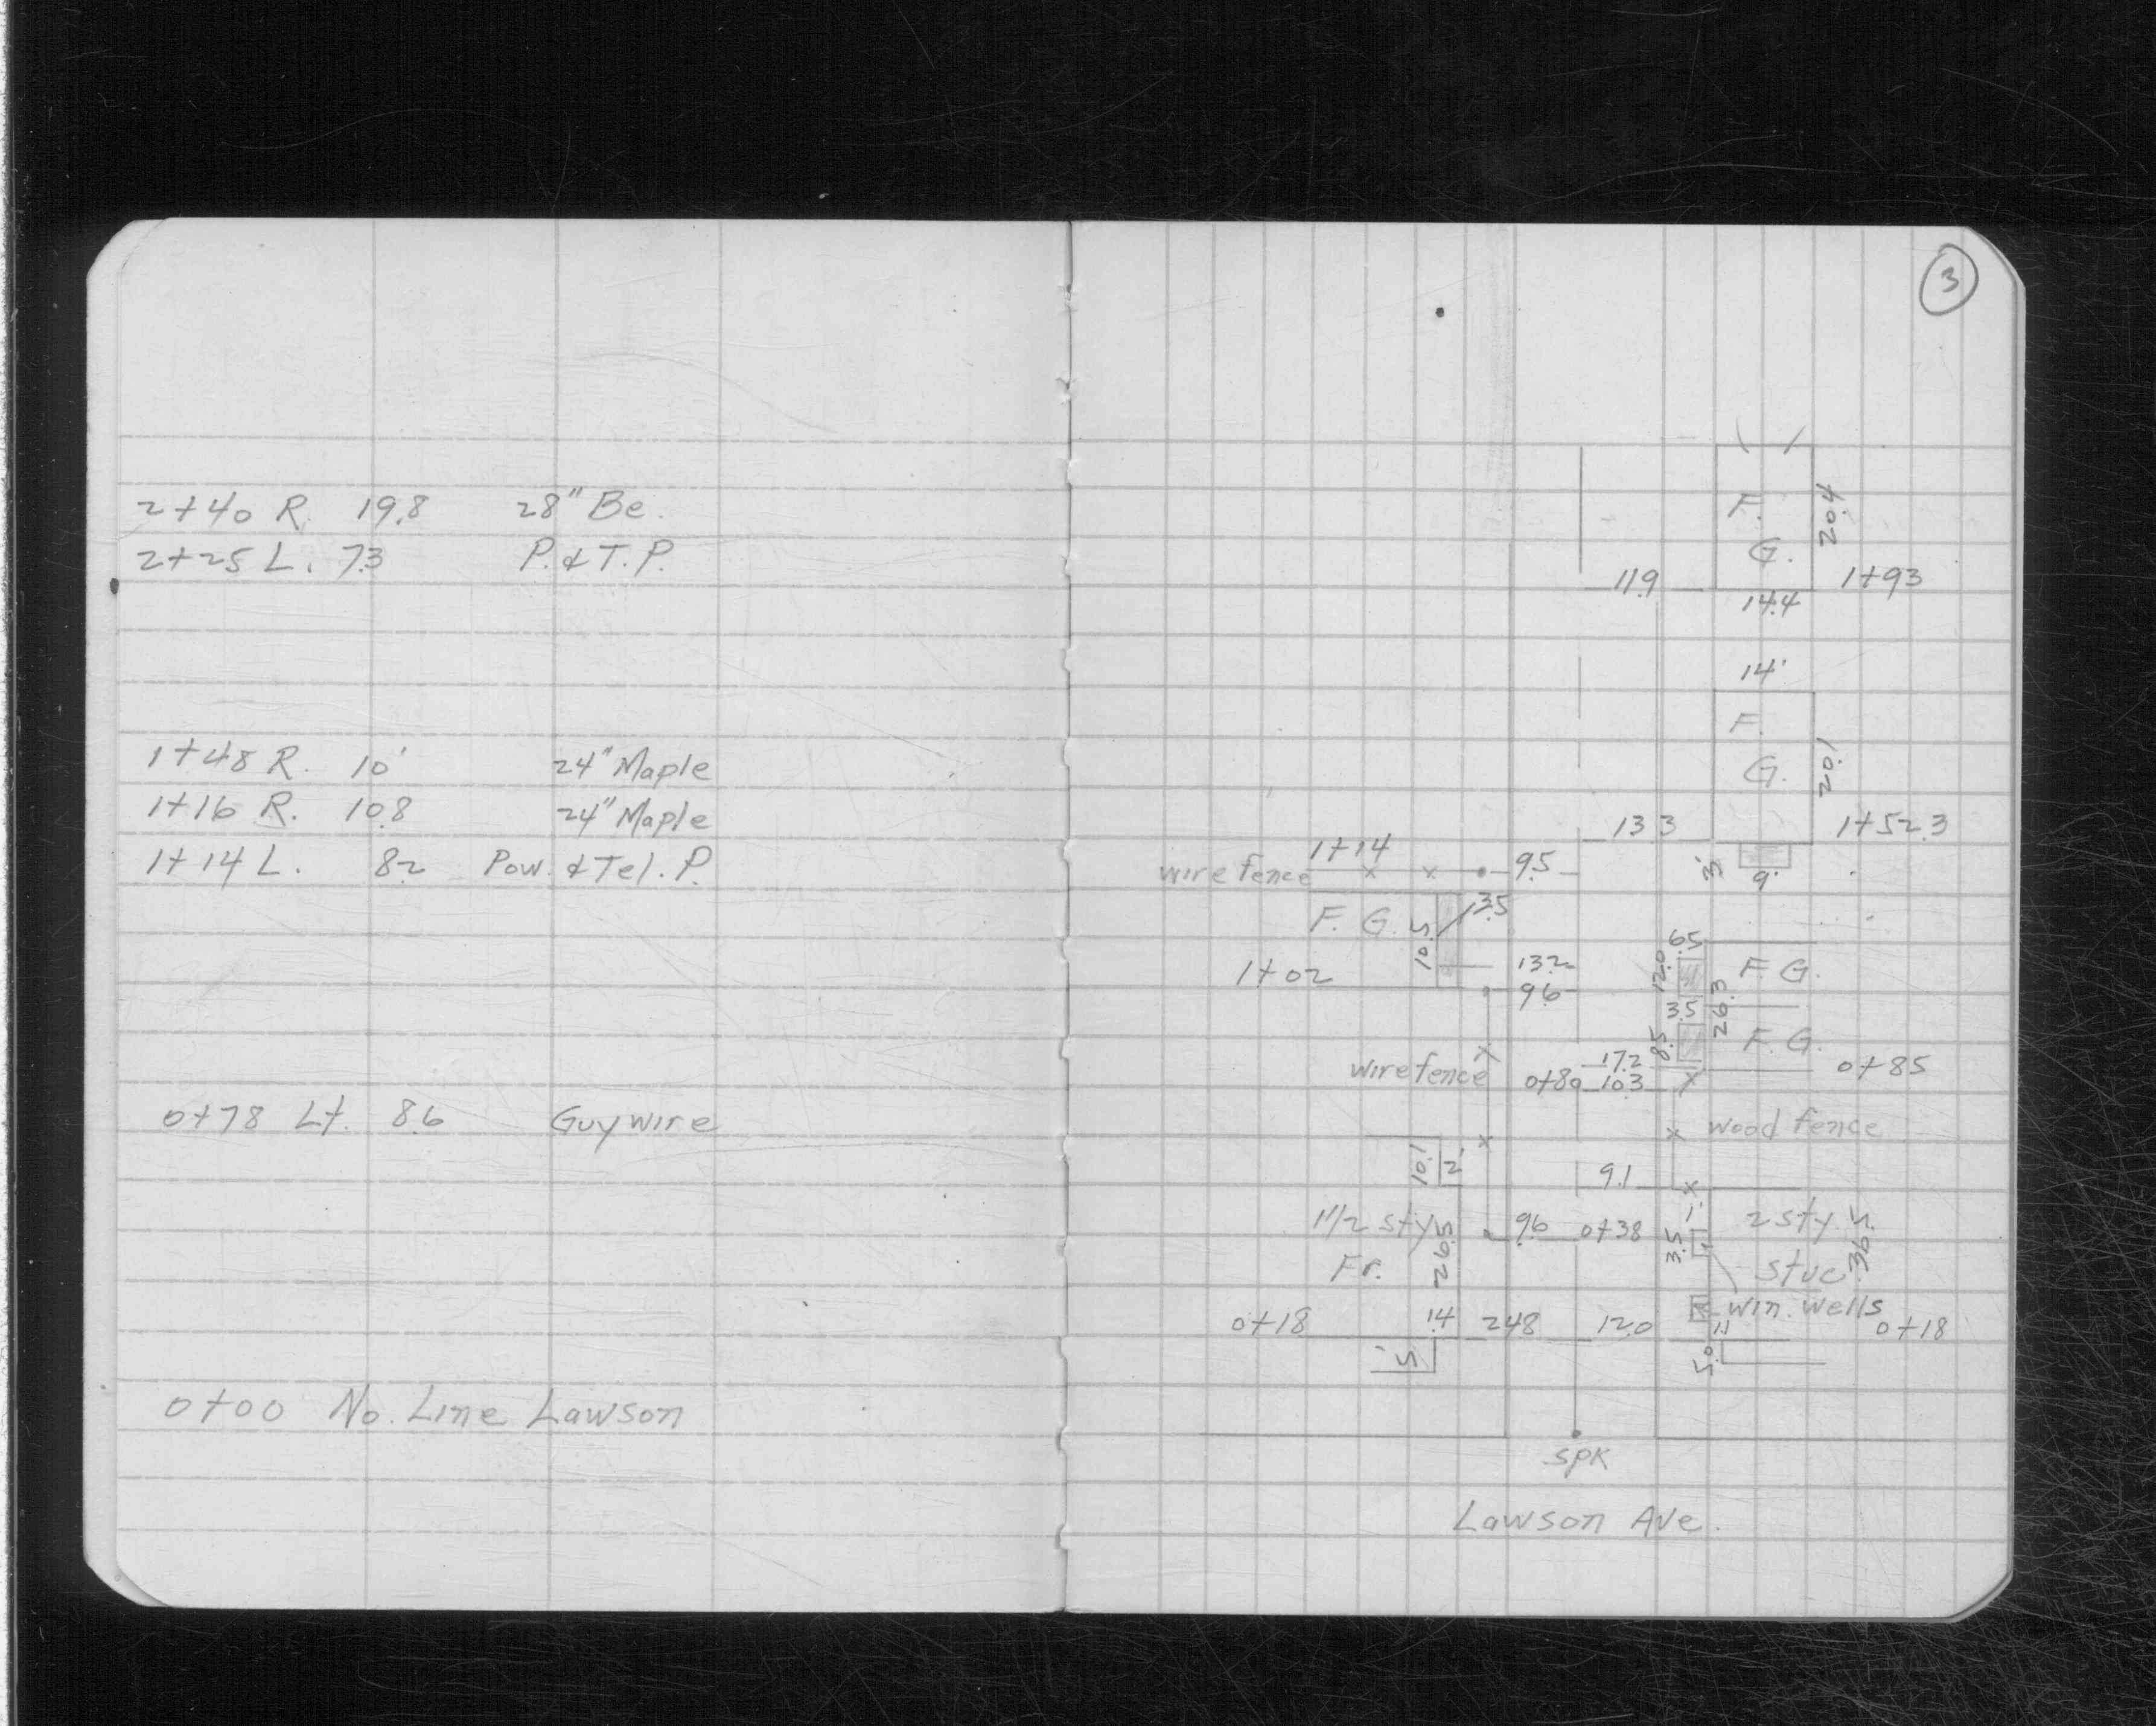 2+40 R. 19.8 28" Be.
2+25 L. 7.3 P. & T. P.
1+48 R. 10' 24" Maple
1+16 R. 10.8 24" Maple
1+14 L. 8.2 Pow. & Tel. P.
0+78 Lt. 8.6 Guy wire
0+00 No. Line Lawson
3
F. G. 20.4
11.9 1+93
14.4
14'
F. G. 20.1
13.3 1+52.3
3' 9'
1+14
wire fence 9.5
F. G. 10.5 13.5
6.5
12.0 F. G.
1+02 13.2
9.6
3.5 26.3
8.5 F. G.
17.2 0+85
wire fence 0+80 10.3
wood fence
10.1 2' 9.1
1 1/2 sty 26.5 9.6 0+38 3.5 1' 2 sty. 36.5
Fr. stuc.
win. wells
0+18 1.4 24.8 12.0 1.1 0+18
5' 5.0
SPK
Lawson Ave.